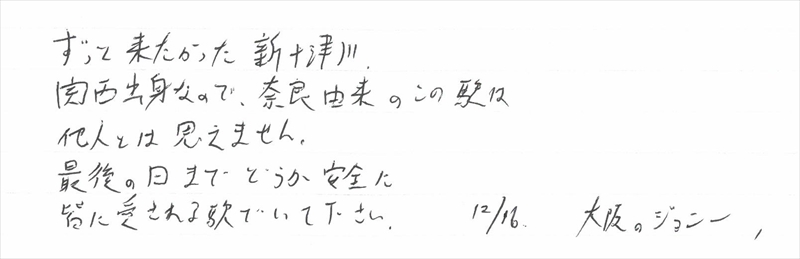 ずっと来たかった新十津川.
関西出身なので、奈良由来のこの駅は
他人とは思えません.
最後の日までどうか安全に
皆に愛される駅でいて下さい. 12/16. 大阪のジョニー,